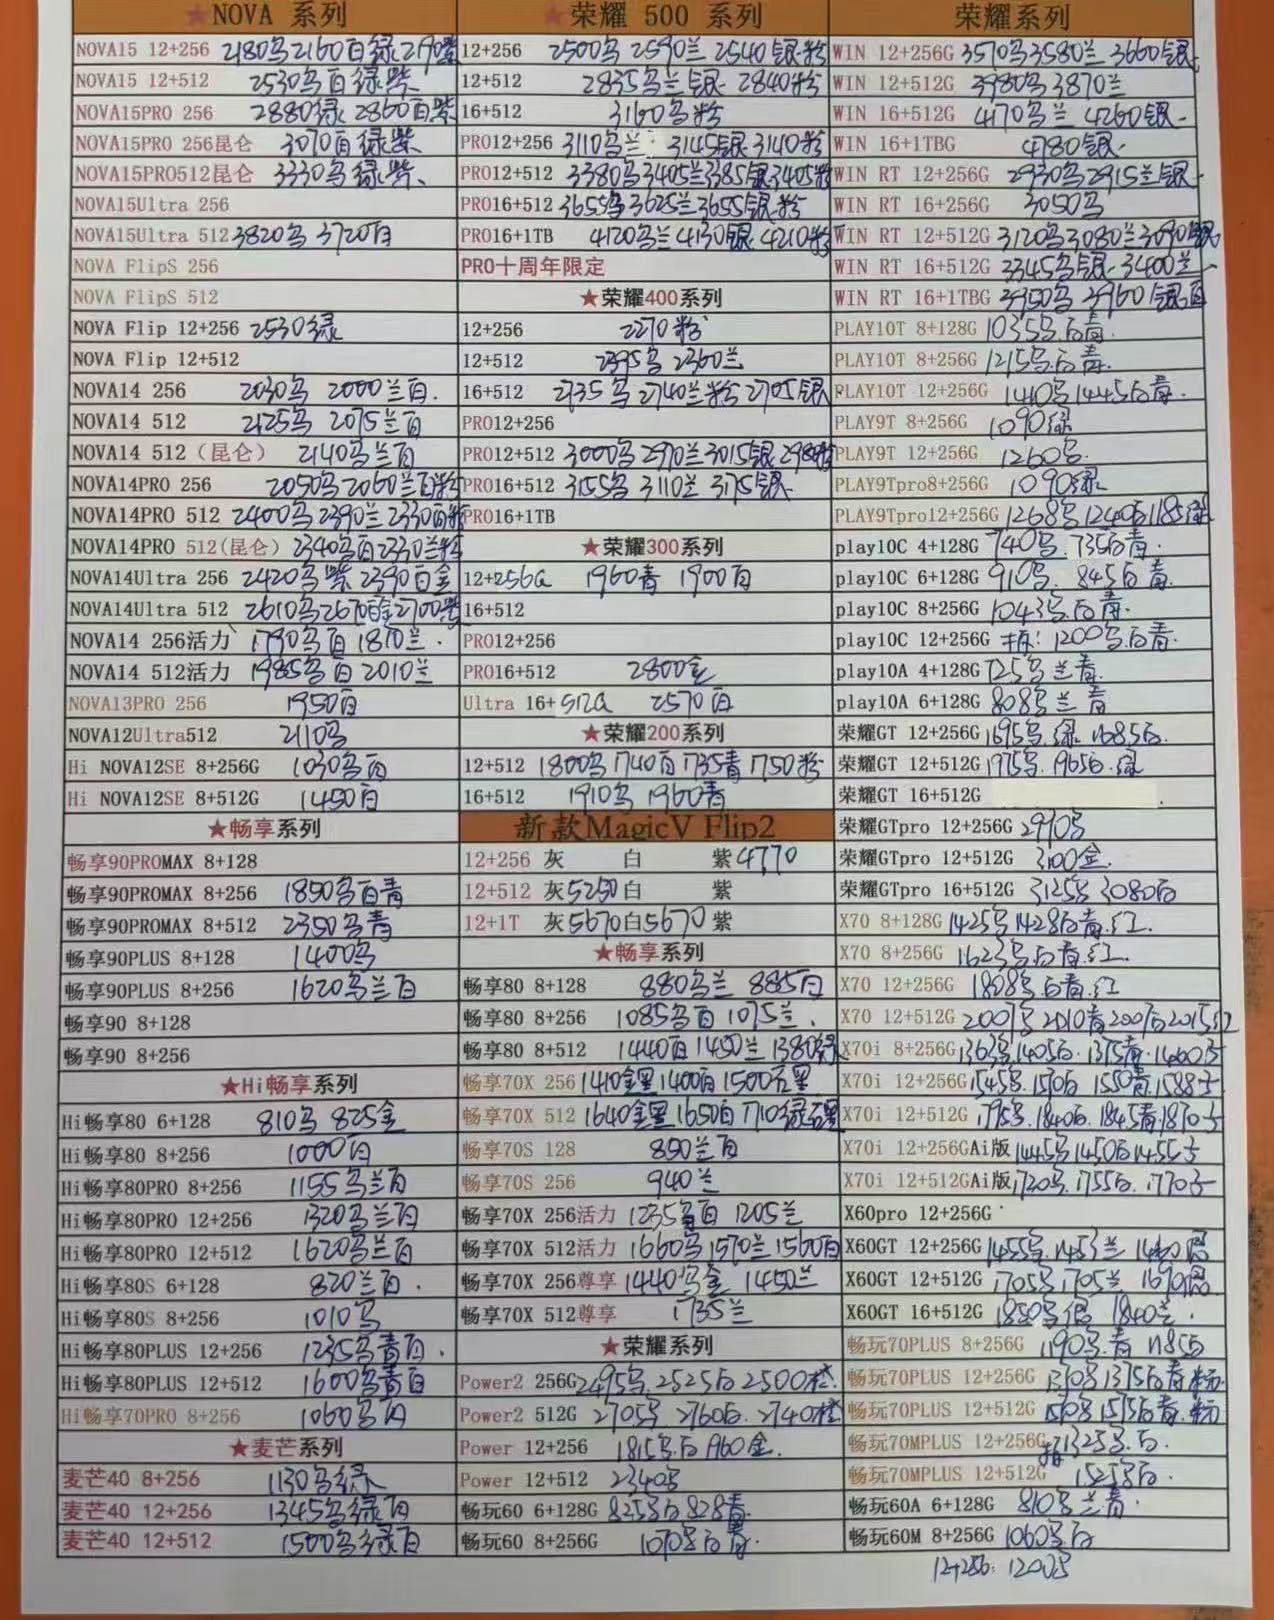 ★NOVA 系列
NOVA15 12+256 2180乌2160百绿2190紫
NOVA15 12+512 2530乌百绿紫
NOVA15PRO 256 2880绿 2860百紫
NOVA15PRO 256昆仑 3070百绿紫
NOVA15PRO512昆仑 3330乌绿紫
NOVA15Ultra 256
NOVA15Ultra 512 3820乌 3720百
NOVA FlipS 256
NOVA FlipS 512
NOVA Flip 12+256 2530绿
NOVA Flip 12+512
NOVA14 256 2030乌 2000兰百.
NOVA14 512 2125乌 2075兰百
NOVA14 512（昆仑） 2140乌兰百
NOVA14PRO 256 2050乌2060兰百粉
NOVA14PRO 512 2400乌2390兰2330百粉
NOVA14PRO 512(昆仑) 2340乌百2330兰粉
NOVA14Ultra 256 2420乌紫 2390百金
NOVA14Ultra 512 2610乌2670百金2700紫
NOVA14 256活力 1790乌百 1810兰.
NOVA14 512活力 1985乌百 2010兰
NOVA13PRO 256 1950百
NOVA12Ultra512 2110乌
Hi NOVA12SE 8+256G 1030乌百
Hi NOVA12SE 8+512G 1450百
★畅享系列
畅享90PROMAX 8+128
畅享90PROMAX 8+256 1850乌百青
畅享90PROMAX 8+512 2350乌青
畅享90PLUS 8+128 1400乌
畅享90PLUS 8+256 1620乌兰百
畅享90 8+128
畅享90 8+256
★Hi畅享系列
Hi畅享80 6+128 810乌 825金
Hi畅享80 8+256 1000百
Hi畅享80PRO 8+256 1155乌兰百
Hi畅享80PRO 12+256 1320乌兰百
Hi畅享80PRO 12+512 1620乌兰百
Hi畅享80S 6+128 820兰百.
Hi畅享80S 8+256 1010乌
Hi畅享80PLUS 12+256 1235乌青百.
Hi畅享80PLUS 12+512 1600乌青百
Hi畅享70PRO 8+256 1060乌百
★麦芒系列
麦芒40 8+256 1130乌绿
麦芒40 12+256 1345乌绿百
麦芒40 12+512 1500乌绿百
★荣耀 500 系列
12+256 2500乌 2590兰 2540银.粉
12+512 2835乌兰银. 2840粉
16+512 3160乌粉
PRO12+256 3110乌兰. 3145银.3140粉
PRO12+512 3380乌3405兰3385银3405粉
PRO16+512 3655乌3625兰3655银.粉
PRO16+1TB 4120乌兰4130银.4210粉
PRO十周年限定
★荣耀400系列
12+256 2270粉
12+512 2395乌 2360兰
16+512 2735乌2740兰粉2705银
PRO12+256
PRO12+512 3000乌2970兰3015银2980粉
PRO16+512 3155乌 3110兰 3175银.
PRO16+1TB
★荣耀300系列
12+256G 1960青 1900百
16+512
PRO12+256
PRO16+512 2800金
Ultra 16+512G 2570百
★荣耀200系列
12+512 1800乌1740百1735青1750粉
16+512 1910乌 1960青
新款MagicV Flip2
12+256 灰 白 紫4770
12+512 灰5250白 紫
12+1T 灰5670白5670紫
★畅享系列
畅享80 8+128 880乌兰 885百
畅享80 8+256 1085乌百 1075兰.
畅享80 8+512 1440百 1450兰 1380绿
畅享70X 256 1410金黑1400百1500石黑
畅享70X 512 1640金黑1650百1710绿石黑
畅享70S 128 850兰百
畅享70S 256 940兰
畅享70X 256活力 1235乌百 1205兰
畅享70X 512活力 1660乌1570兰1560百
畅享70X 256尊享 1440乌金 1450兰
畅享70X 512尊享 1735兰
★荣耀系列
Power2 256G 2495乌.2525白2500橙.
Power2 512G 2705乌 2760白. 2740橙
Power 12+256 1815乌.白1960金.
Power 12+512 2340乌
畅玩60 6+128G 825乌白828青.
畅玩60 8+256G 1070乌白青.
荣耀系列
WIN 12+256G 3570乌3580兰 3660银.
WIN 12+512G 3980乌3870兰
WIN 16+512G 4170乌兰 4260银.
WIN 16+1TBG 4780银.
WIN RT 12+256G 2930乌2915兰银.
WIN RT 16+256G 3050乌
WIN RT 12+512G 3120乌3080兰3090银
WIN RT 16+512G 3345乌银.3400兰
WIN RT 16+1TBG 3950乌 3960银白
PLAY10T 8+128G 1035乌.白青.
PLAY10T 8+256G 1215乌.白青.
PLAY10T 12+256G 1440乌1445白青.
PLAY9T 8+256G 1090绿
PLAY9T 12+256G 1260乌.
PLAY9Tpro8+256G 1090绿
PLAY9Tpro12+256G 1268乌1240白1185绿
play10C 4+128G 740乌.735白青.
play10C 6+128G 910乌. 845白青.
play10C 8+256G 1043乌白青.
play10C 12+256G 拆:1200乌白青.
play10A 4+128G 725乌兰青.
play10A 6+128G 808乌兰青
荣耀GT 12+256G 1695乌.绿 1685白.
荣耀GT 12+512G 1975乌.1965白.绿
荣耀GT 16+512G
荣耀GTpro 12+256G 2990乌
荣耀GTpro 12+512G 3100金.
荣耀GTpro 16+512G 3125乌 3080白
X70 8+128G 1425乌1428白青.红.
X70 8+256G 1623乌白青.红.
X70 12+256G 1808乌白青.红
X70 12+512G 2007乌2010青2007白2015红
X70i 8+256G 1363乌1405白.1375青.1460子
X70i 12+256G 1545乌.1570白 1550青.1588子
X70i 12+512G 1795乌.1840白.1845青.1870子
X70i 12+256GAi版 1445乌1450白1455子
X70i 12+512GAi版 1720乌.1755白.1770子
X60pro 12+256G
X60GT 12+256G 1455乌.1453兰
X60GT 12+512G 1705乌1705兰
X60GT 16+512G 1850乌 1840兰.
畅玩70PLUS 8+256G 1190乌.青 1185白
畅玩70PLUS 12+256G 1375白青
畅玩70PLUS 12+512G 1570乌1575白青.
畅玩70MPLUS 12+256G 拆1325乌.白.
畅玩70MPLUS 12+512G 1525乌白.
畅玩60A 6+128G 810乌兰青.
畅玩60M 8+256G 1060乌白
12+256: 1200乌